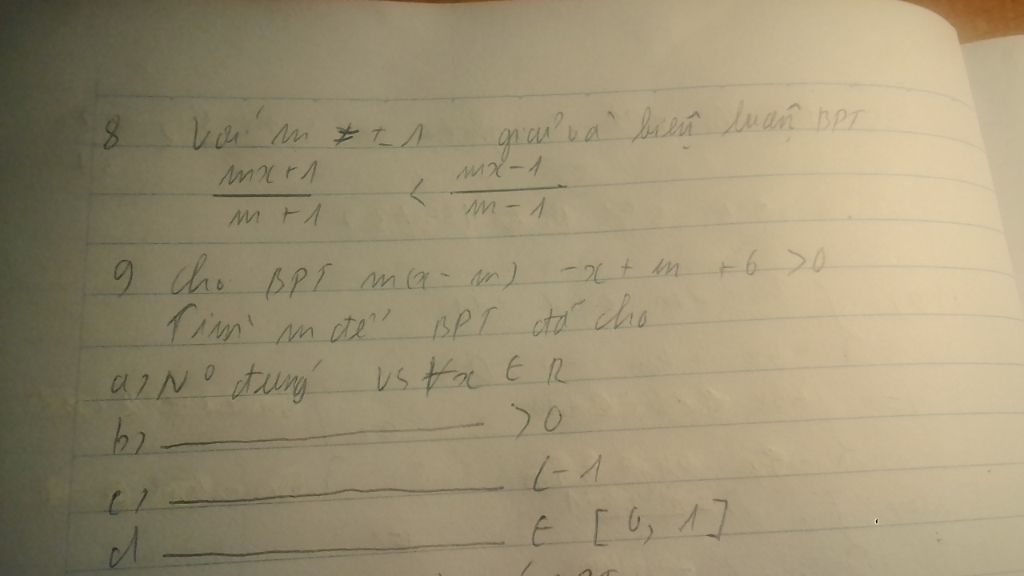 8 Với m ≠ ± 1 giải và biện luận BPT
mx+1 < mx-1
m+1 m-1
9 Cho BPT m(x-m) -x+m +6 >0
Tìm m để BPT đã cho
a, N° đúng vs ∀x ∈ R
b, ________ >0
c, ________ <-1
d ________ ∈ [0, 1]